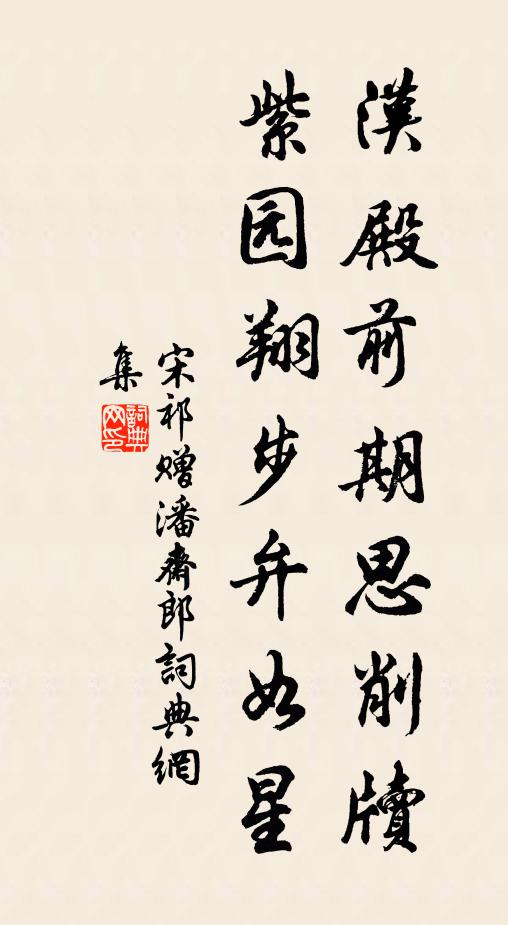 漢殿前期思削牘
紫园翔步弁如星
宋祁赠潘齋郎詞典網
集
詞典网印